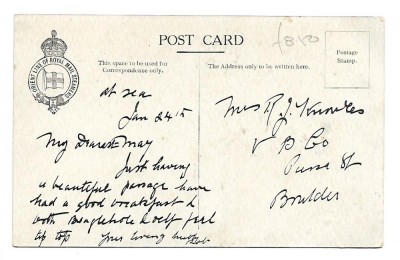 POST CARD
£8.50
ORIENT LINE OF ROYAL MAIL STEAMERS
This space to be used for
Correspondence only.
The Address only to be written here.
Postage
Stamp.
at sea
Jan 24th
My Dearest May
Just having
a beautiful passage have
had a good breakfast &
both self feel
tip top your loving
Mrs R J Knowles
V B Co
St
Boulder